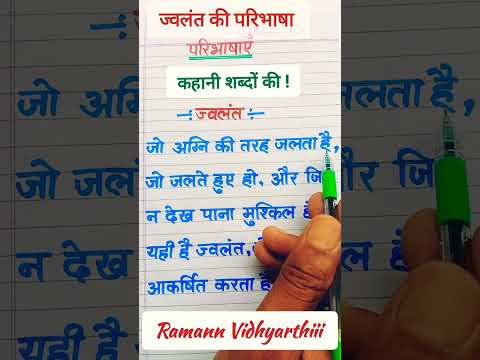 ज्वलंत की परिभाषा
परिभाषाएँ
कहानी शब्दों की !
ज्वलंत
जो अग्नि की तरह जलता है,
जो जलते हुए हो, और
न देख पाना मुश्किल
यही है ज्वलंत,
आकर्षित करता है
Ramann Vidhyarthiii